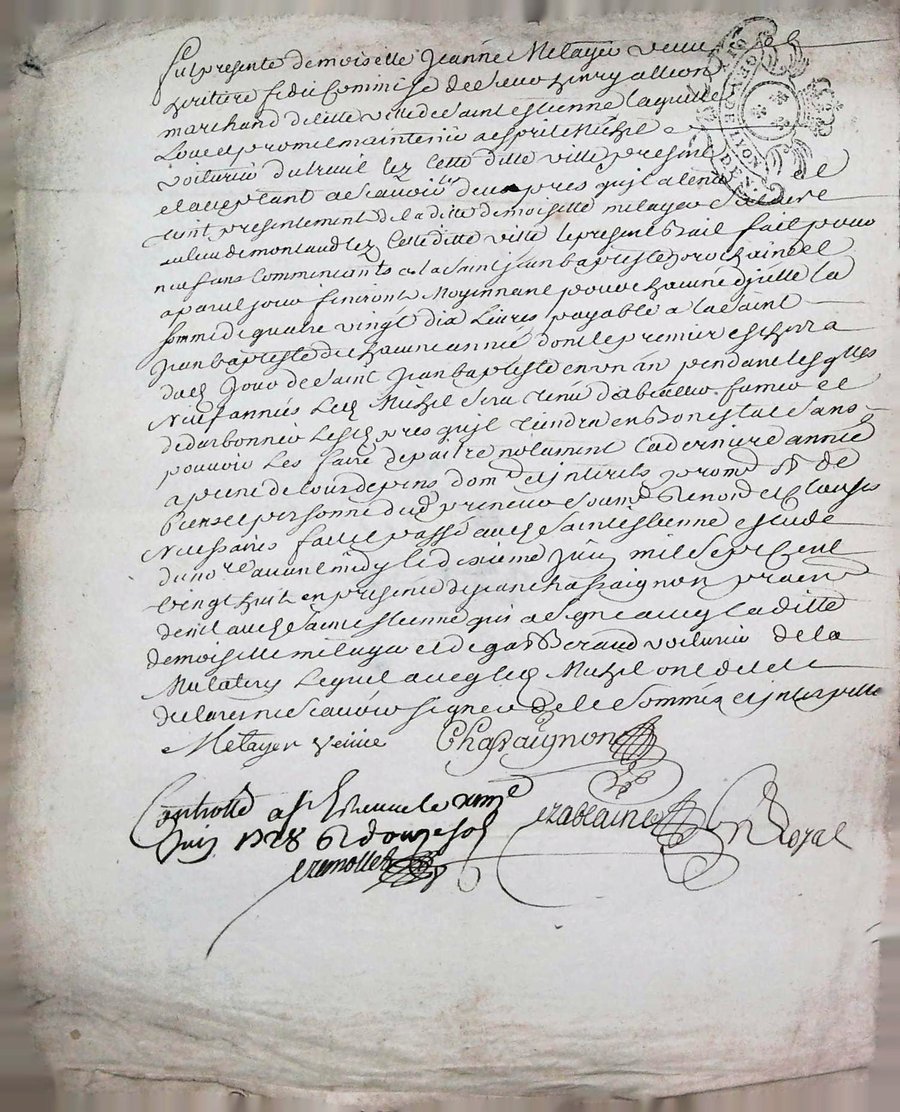 fut presente demoiselle Jeanne Metayer veuve
heritiere fideicommise de sieur henry allion
marchand de cette ville de saint estienne laquelle
loue et promet maintenir a esprit Michel
voiturier du treuil lez cette ditte ville present
et acceptant a scavoir les deux pres qu'il a tenu et
tient presentement de la ditte demoiselle metayer
au lieu de montaud lez cette ditte ville le present bail fait pour
neuf ans commencants a la saint jean baptiste prochaine et
a pareil jour finiront Moyennant pour chaune d'jcelle la
somme de quatre vingt dix Livres payable a la saint
jean baptiste de chaune année dont le premier eschera
dud jour de saint Jean baptiste en un an pendant lesq^lles
Neuf années Led Michel sera tenu
Lesd pres qu'jl tiendra en bon estat sans
pouvoir les faire depaitre notament la derniere année
a peine de tous depens dom^s et jnterets prom^t
biens et personne dud preneur soum^s Renon et clauses
Necessaires fait et passé aud saint estienne estude
du no^re avant midy le dixieme juin mil sept cent
vingt huit en presence de jean chassaignon praticien
aud saint estienne qui a signé avec la ditte
demoiselle metayer et de Beraud voiturier de la
Mulatiere Lequel avec led Michel ont
declaré ne scavoir signer de ce sommés et jnterpellé
Metayer veuve Chassaignon
Controllé a s^t Estienne le
Juin 1728 R douze sols
ezablaine n^re Royal
cremollet
GEN. DE LYON